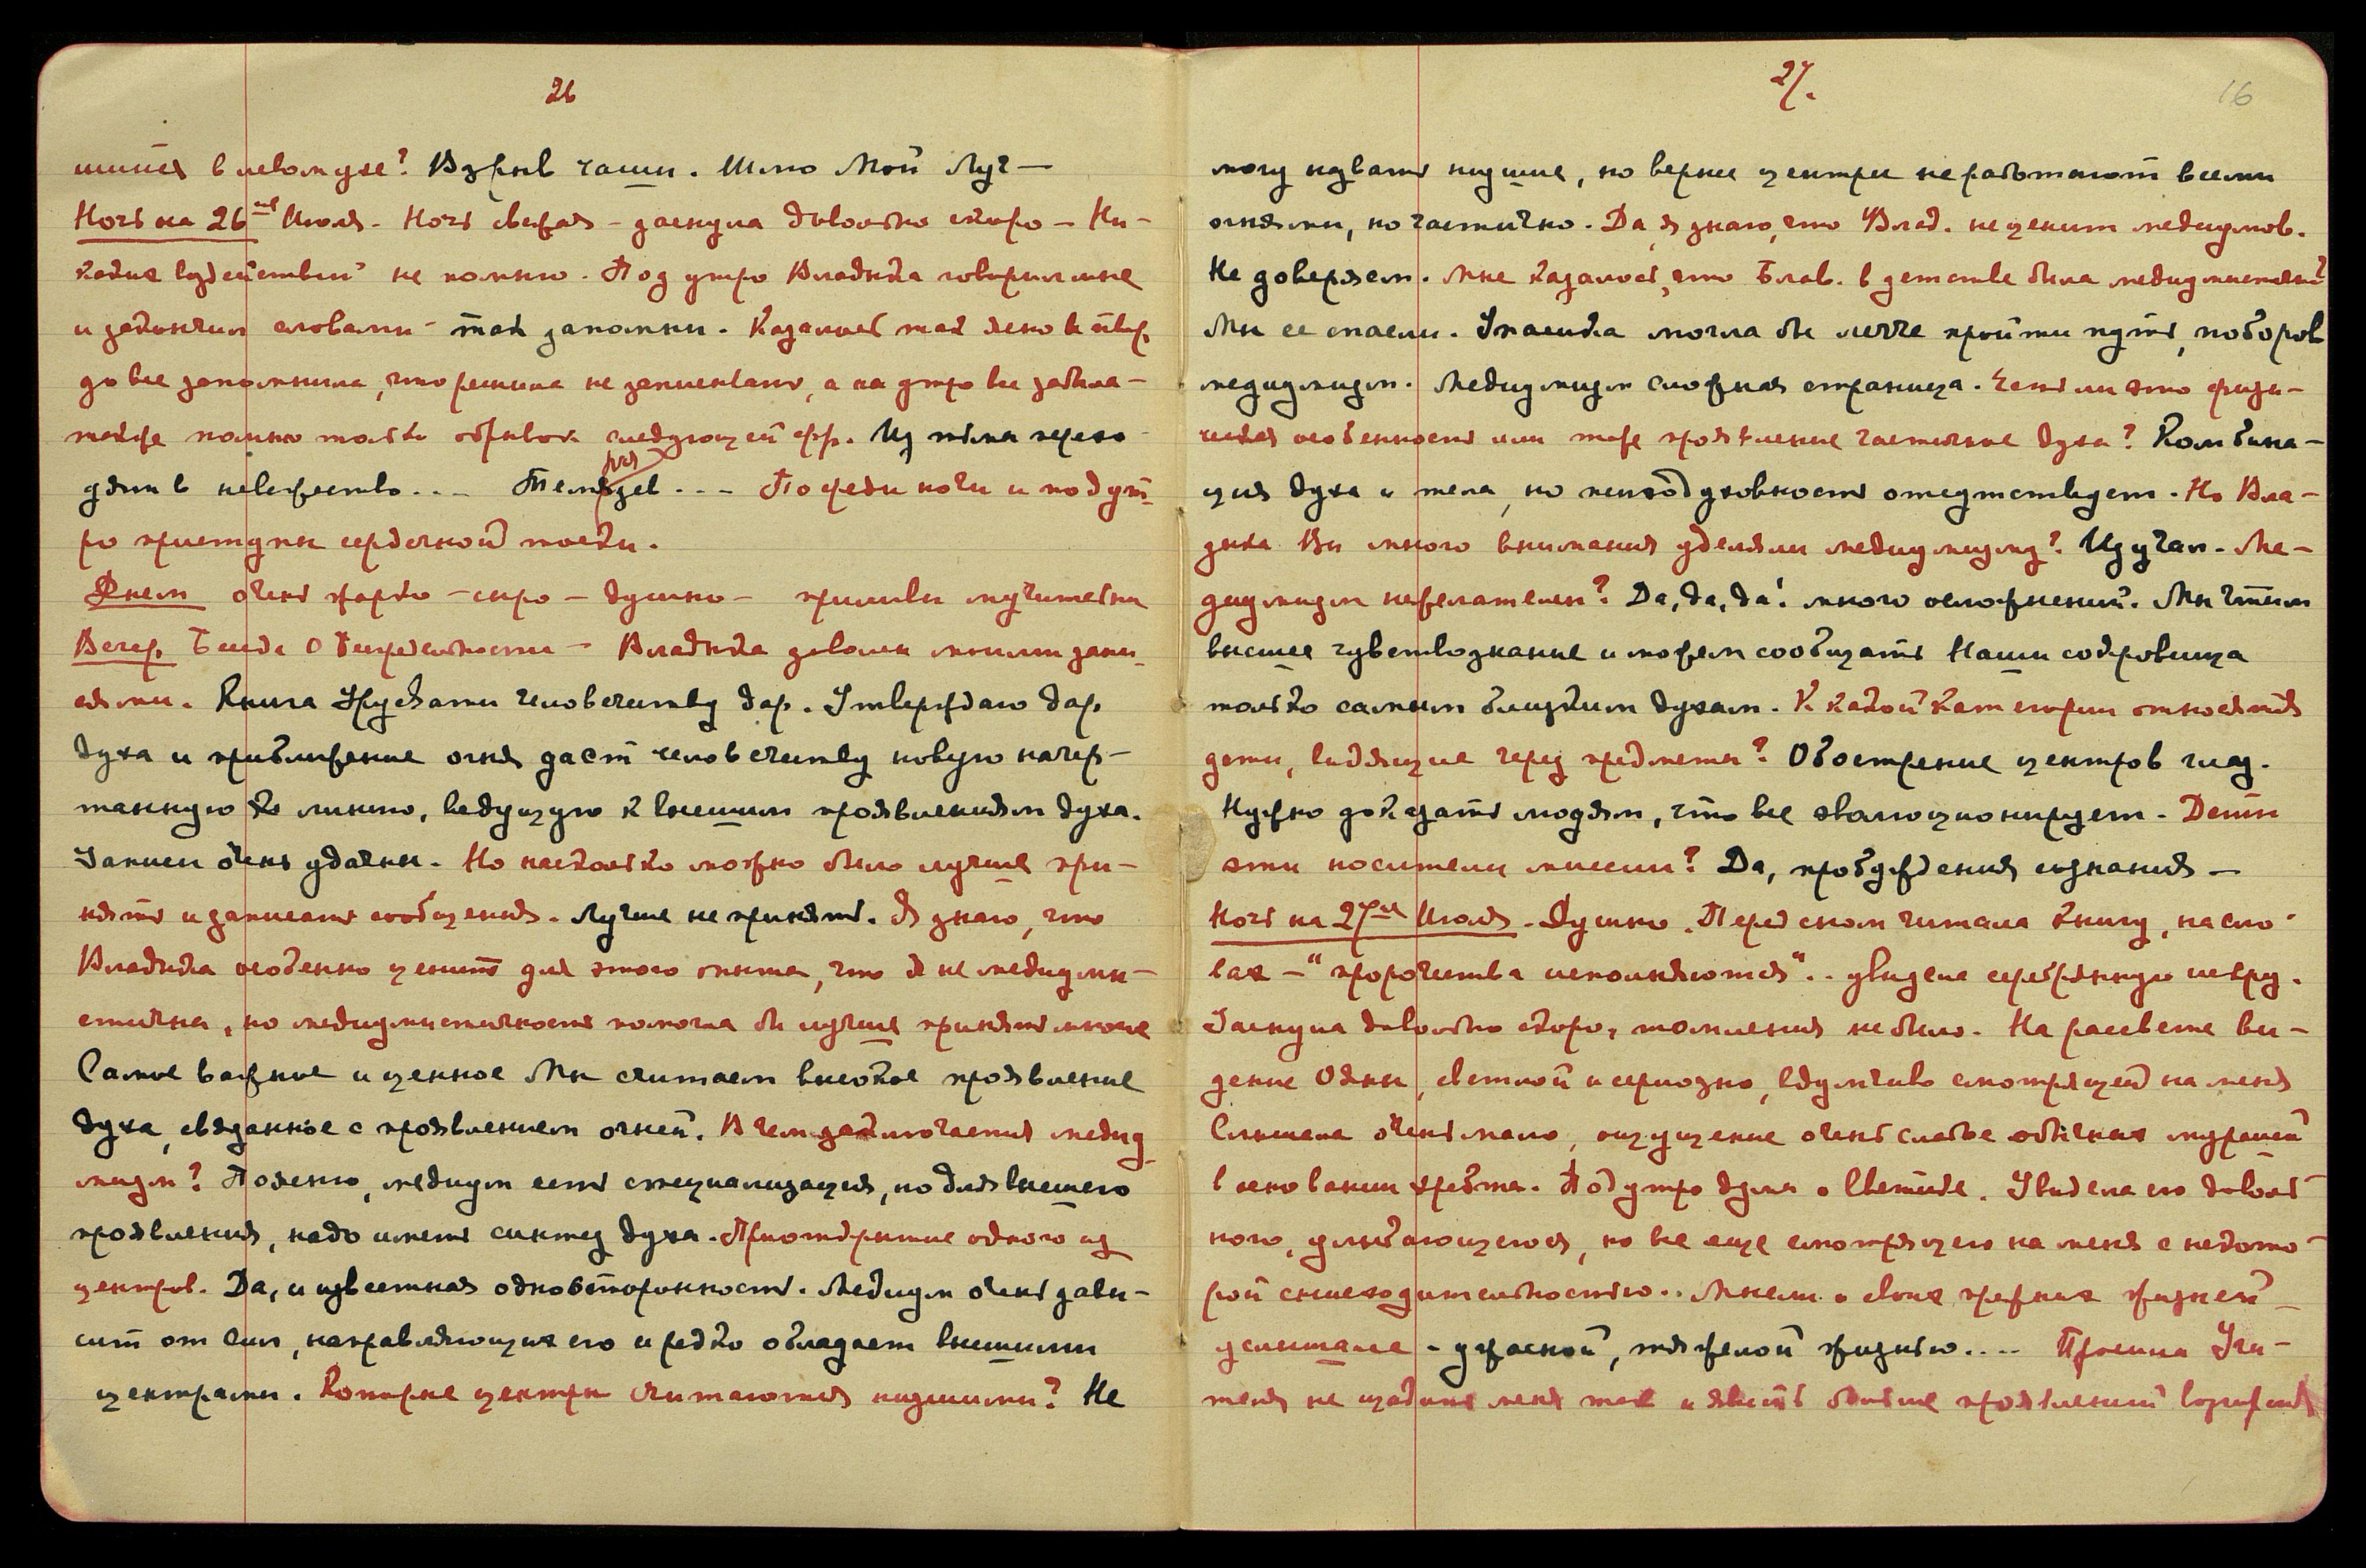 26
шийся в левом ухе? Взрыв чаши. Шлю Мой Луч —
Ночь на 26ое Июля. Ночь свежая – заснула довольно скоро – Ни-
каких воздействий не помню. Под утро Владыка говорил мне
и закончил словами – так запомни. Казалось так ясно и твер
до все запомнила, что решила не записывать, а на утро все забыла –
также помню только обрывок следующей фр. Из тьмы перехо
дят в невежество... ... Посреди ночи и под ут
ро приступы сердечной тоски.
Днем очень жарко – сыро – душно – приливы мучительны
Вечер. Беседа о Беспредельности – Владыка доволен моими запи
сями. Книга Урусвати человечеству дар. Утверждаю дар
духа и приближение огня даст человечеству новую начер-
танную линию, ведущую к высшим проявлениям духа.
Записи очень удачны. Но насколько можно было лучше при-
нять и записать сообщения. Лучше не принять. Я знаю, что
Владыка особенно ценит для этого опыта, что я не медиуми-
стична, но медиумистичность помогла бы лучше принять многое
Самое важное и ценное Мы считаем высокое проявление
духа, связанное с проявлением огней. В чем заключается медиу
мизм? Поясню, медиум есть специализация, но для высшего
проявления, надо иметь синтез духа. Приоткрытие одного из
центров. Да, и известная одновсторонность. Медиум очень зави-
сит от сил, направляющих его и редко обладает высшими
центрами. Которые центры считаются низшими? Не
27.
16
могу назвать низшие, но вернее центры не работают всеми
огнями, но частично. Да, я знаю, что Влад. не ценит медиумов.
Не доверяем. Мне казалось, что Блав. в детстве была медиумистична?
Мы ее спасли. Упасика могла бы легче пройти путь, поборов
медиумизм. Медиумизм сложная страница. Есть ли это физи-
ческая особенность или тоже проявление частичное духа? Комбина-
ция духа и тела, но психодуховность отсутствует. Но Вла-
дыка Вы много внимания уделяли медиумизму? Изучал. Ме-
диумизм нежелателен? Да, да, да! много осложнений. Мы чтим
высшее чувствознание и можем сообщать Наши сокровища
только самым близким духам. К какой категории относятся
дети, видящие через предметы? Обострение центров глаз.
Нужно доказать людям, что все эволюционирует. Дети
эти носители миссии? Да, пробуждения сознания —
Ночь на 27ое Июля. Душно. Перед сном читала книгу, на сло-
вах – "пророчества исполняются".. увидела серебрянную искру.
Заснула довольно скоро, томления не было. На рассвете ви-
дение Ояны, светлой и серьозно, вдумчиво смотрящей на меня
Слышала очень мало, ощущение очень слабое обычных мурашей
в основании хребта. Под утро думы о Светике. Увидела его доволь-
ного, улыбающегося, но все еще смотрящего на меня с некото-
рой снисходительностью.. Мысли о своих прежних жизней
услышала – ужасной, тяжелой жизнью.... Просила Учи-
теля не щадить меня так и явить обилие проявлений